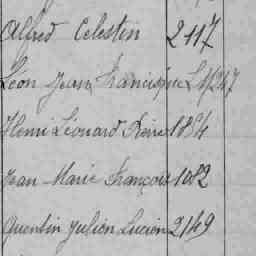 Alfred Celestin 2117
Léon Jean Francisque
Henri Léonard Pierre 1884
Jean Marie François 1082
Quentin Julien Lucien 2149